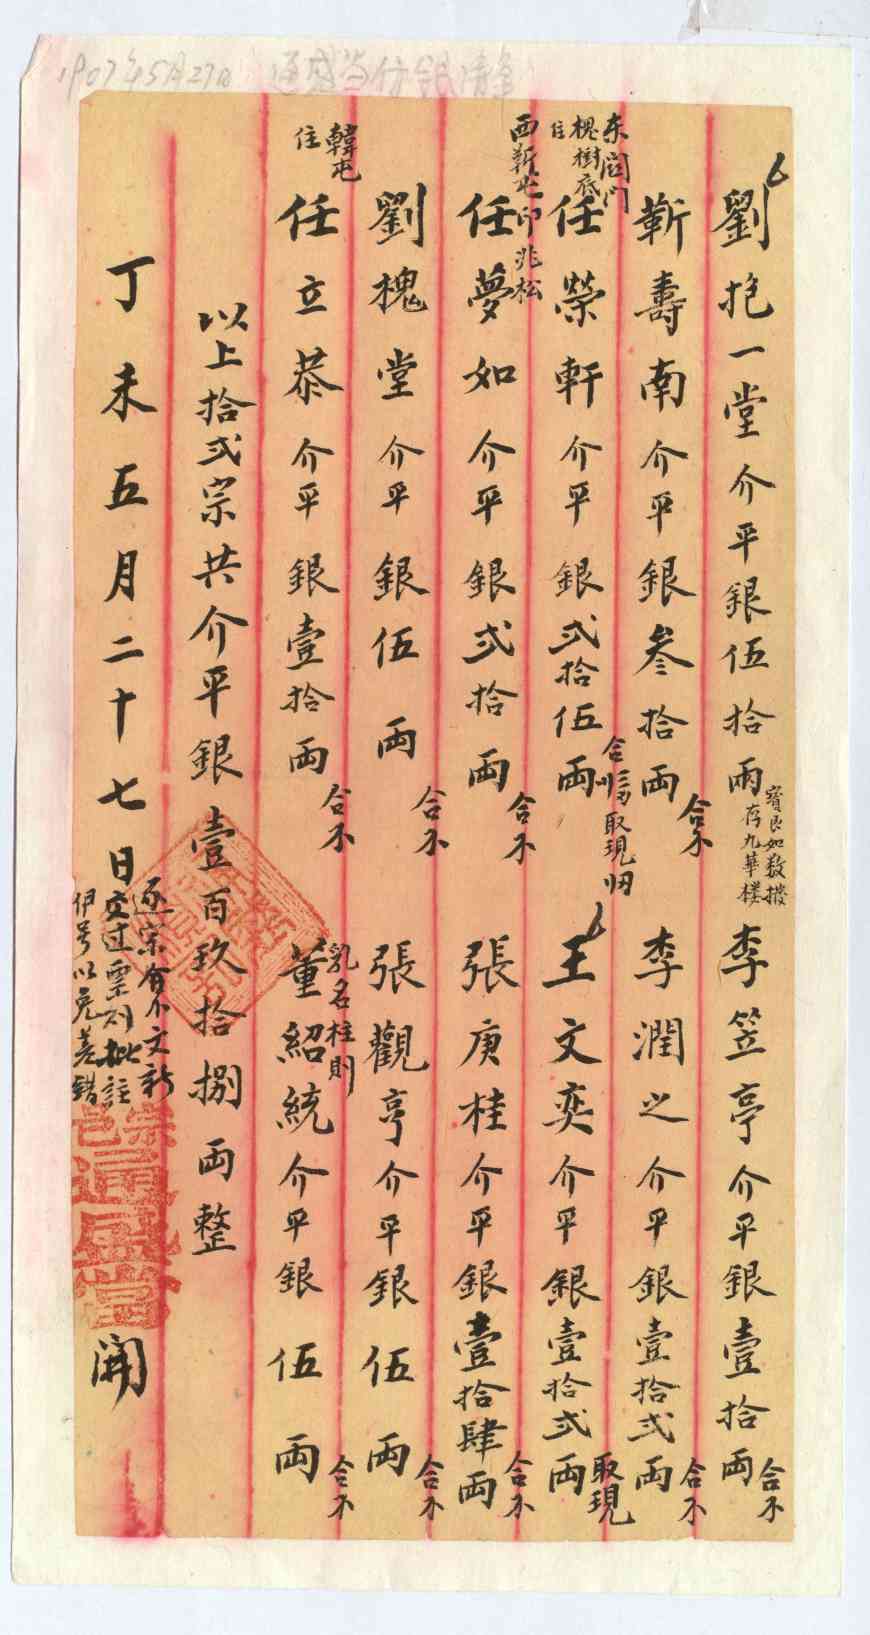 1907年5月27日 通盛当付银清单
劉抱一堂介平銀伍拾兩
寶良如数撥
存九華楼
李笠亭介平銀壹拾两
合不
靳壽南介平銀叁拾两
合不
李潤之介平銀壹拾弍两
合不
东阁门
槐樹底
住
任榮軒介平銀弍拾伍两
取現
王文奕介平銀壹拾弍两
取現
西靳屯印兆松
任夢如介平銀弍拾两
合不
張庚桂介平銀壹拾肆两
合不
劉槐堂介平銀伍两
合不
張觀亨介平銀伍两
合不
韓屯
住
任立恭介平銀壹拾两
合不
乳名柱則
董紹統介平銀伍两
合不
以上拾弍宗共介平銀壹百玖拾捌两整
丁未五月二十七日
逐宗合不文新
交过票则批註
伊号以免差錯
通盛當
開